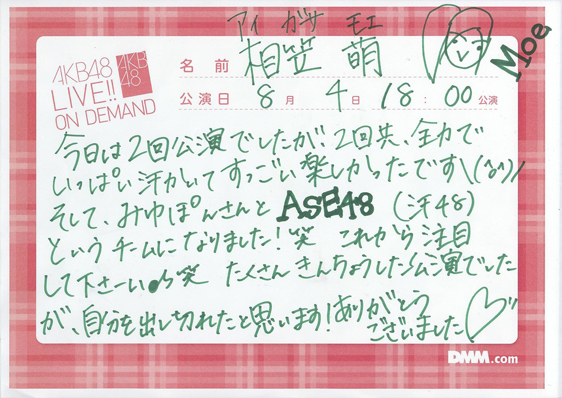 アイ がサ モエ
名前 相笠 萌
Moe
AKB48
LIVE!!
ON DEMAND
AKB
48
公演日 8月 4日 18:00公演
今日は2回公演でしたが!2回共、全力で
いっぱい汗かいてすっごい楽しかったです\(^^)/
そして、みゆぽんさんと ASE48 (汗48)
というチームになりました!笑 これから注目
して下さーい♪笑 たくさんきんちょうした公演でした
が、自分を出し切れたと思います!ありがとう
ございました♡
DMM.com